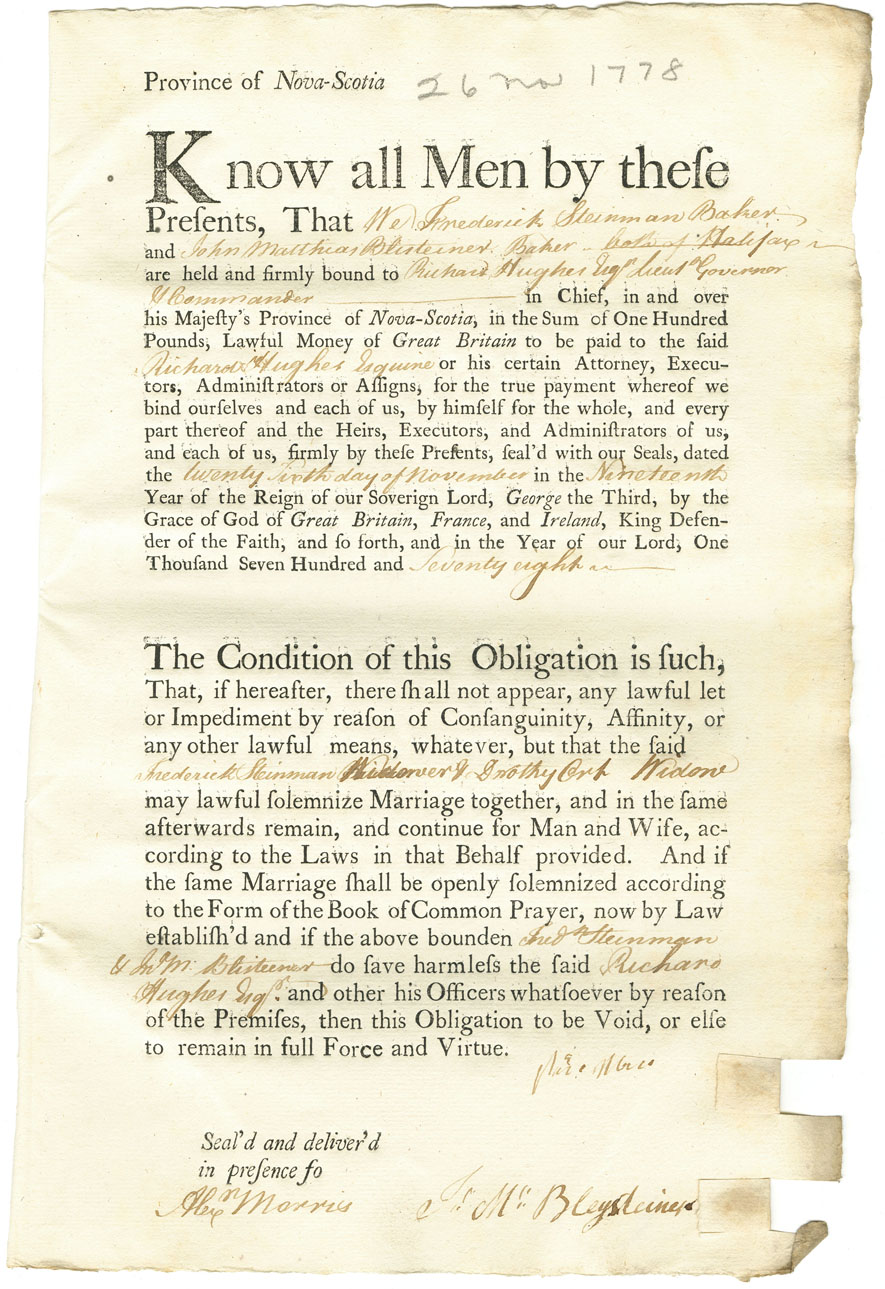 Province of Nova-Scotia 26 Nov 1778
Know all Men by theſe
Preſents, That We Frederick Steinman Baker
and John Matthias Blisteiner Baker both of Halifax
are held and firmly bound to Richard Hughes Esqr. Lieut. Governor
& Commander in Chief, in and over
his Majeſty's Province of Nova-Scotia, in the Sum of One Hundred
Pounds, Lawful Money of Great Britain to be paid to the ſaid
Richard Hughes Esquire or his certain Attorney, Execu-
tors, Adminiſtrators or Aſſigns, for the true payment whereof we
bind ourſelves and each of us, by himſelf for the whole, and every
part thereof and the Heirs, Executors, and Adminiſtrators of us,
and each of us, firmly by theſe Preſents, ſeal'd with our Seals, dated
the twenty Sixth day of November in the Nineteenth
Year of the Reign of our Soverign Lord, George the Third, by the
Grace of God of Great Britain, France, and Ireland, King Defen-
der of the Faith, and ſo forth, and in the Year of our Lord, One
Thouſand Seven Hundred and Seventy eight
The Condition of this Obligation is ſuch,
That, if hereafter, there ſhall not appear, any lawful let
or Impediment by reaſon of Conſanguinity, Affinity, or
any other lawful means, whatever, but that the ſaid
Frederick Steinman Widower & Drothy Ort Widow
may lawful ſolemnize Marriage together, and in the ſame
afterwards remain, and continue for Man and Wife, ac-
cording to the Laws in that Behalf provided. And if
the ſame Marriage ſhall be openly ſolemnized according
to the Form of the Book of Common Prayer, now by Law
eſtabliſh'd and if the above bounden Fredk Steinman
& Jno M: Blisteener do ſave harmleſs the ſaid Richard
Hughes Esqr. and other his Officers whatſoever by reaſon
of the Premiſes, then this Obligation to be Void, or elſe
to remain in full Force and Virtue.
Seal'd and deliver'd
in preſence fo
Alexr Morris Bleysteiner